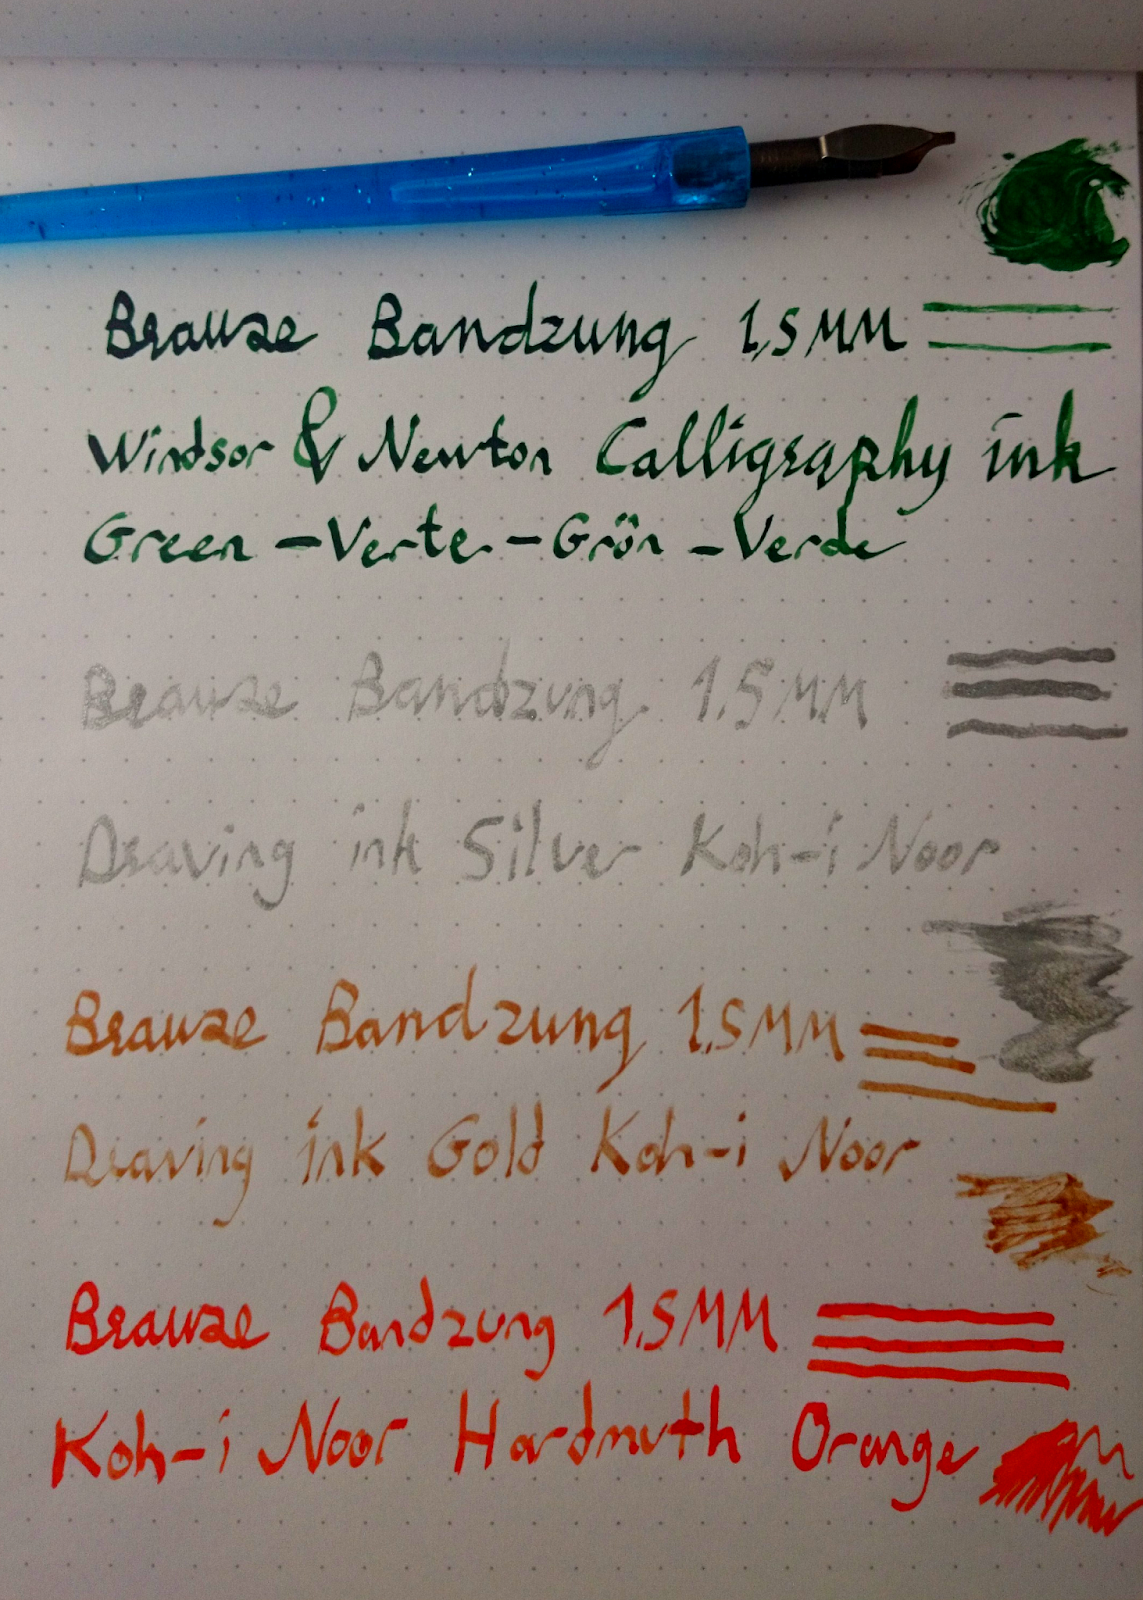 Brause Bandzung 1,5MM
Windsor & Newton Calligraphy ink
Green - Verte - Grön - Verde
Brause Bandzung 1.5MM
Drawing ink Silver Koh-i Noor
Brause Bandzung 1.5MM
Drawing ink Gold Koh-i Noor
Brause Bandzung 1.5MM
Koh-i Noor Hardmuth Orange